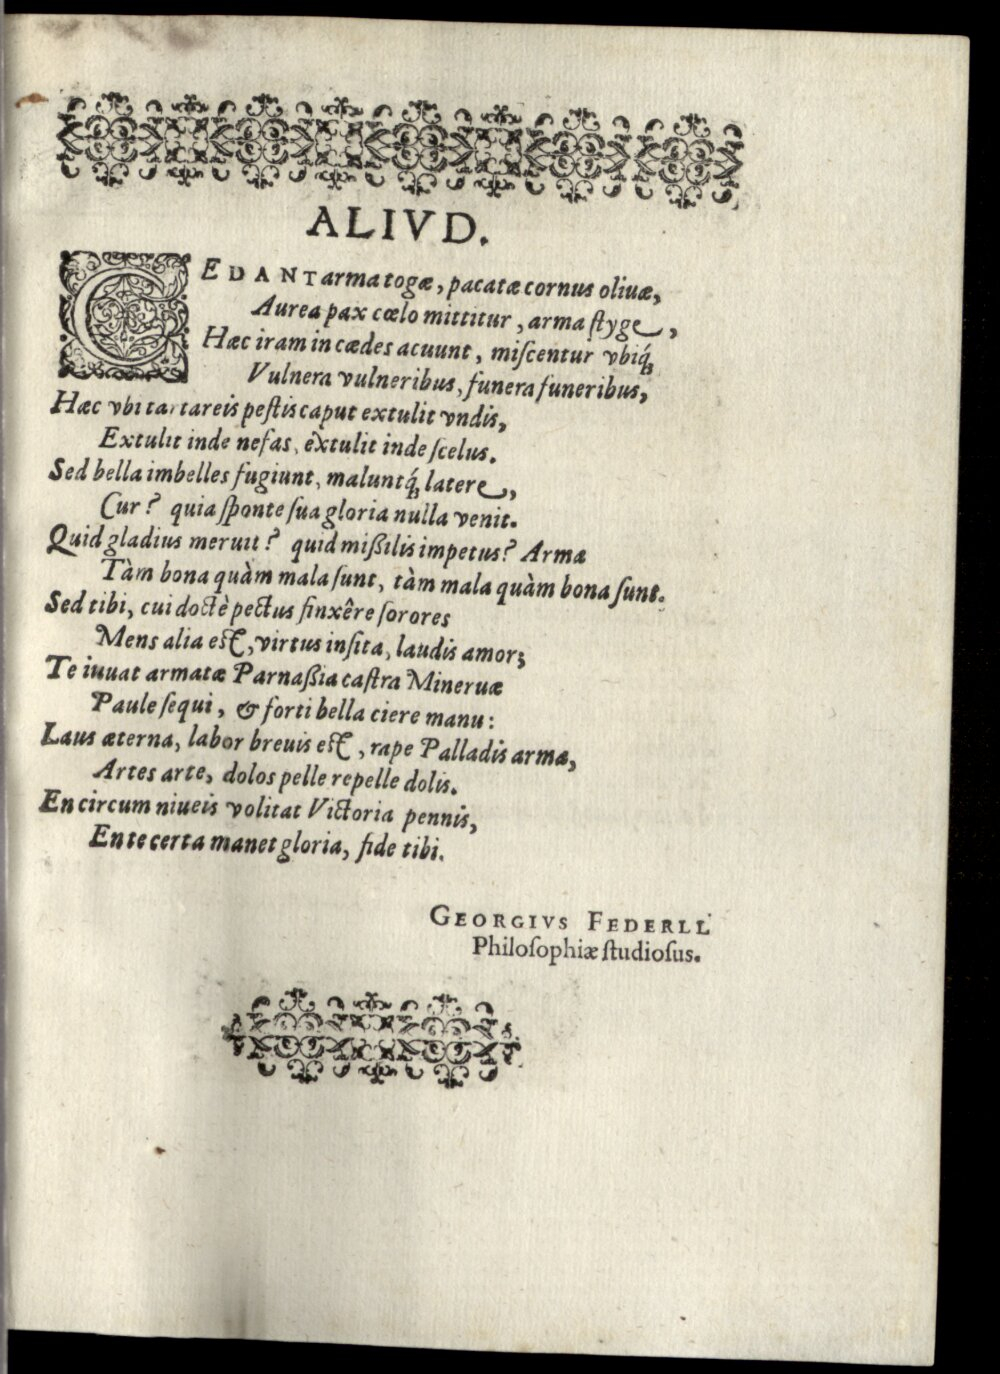 ALIVD.
CEDANT arma togæ, pacatæ cornus oliuæ,
Aurea pax cœlo mittitur, arma ſtyge,
Hæc iram in cædes acuunt, miſcentur vbiq́;
Vulnera vulneribus, funera funeribus,
Hæc vbi tartareis peſtis caput extulit vndis,
Extulit inde nefas, extulit inde ſcelus.
Sed bella imbelles fugiunt, maluntq́; latere,
Cur? quia ſponte ſua gloria nulla venit.
Quid gladius meruit? quid mißilis impetus? Arma
Tàm bona quàm mala ſunt, tàm mala quàm bona ſunt.
Sed tibi, cui doctè pectus finxêre ſorores
Mens alia eſt, virtus inſita, laudis amor;
Te iuuat armatæ Parnaßia caſtra Mineruæ
Paule ſequi, & forti bella ciere manu:
Laus æterna, labor breuis eſt, rape Palladis arma,
Artes arte, dolos pelle repelle dolis.
En circum niueis volitat Victoria pennis,
En te certa manet gloria, fide tibi.
GEORGIVS FEDERLL
Philoſophiæ ſtudioſus.